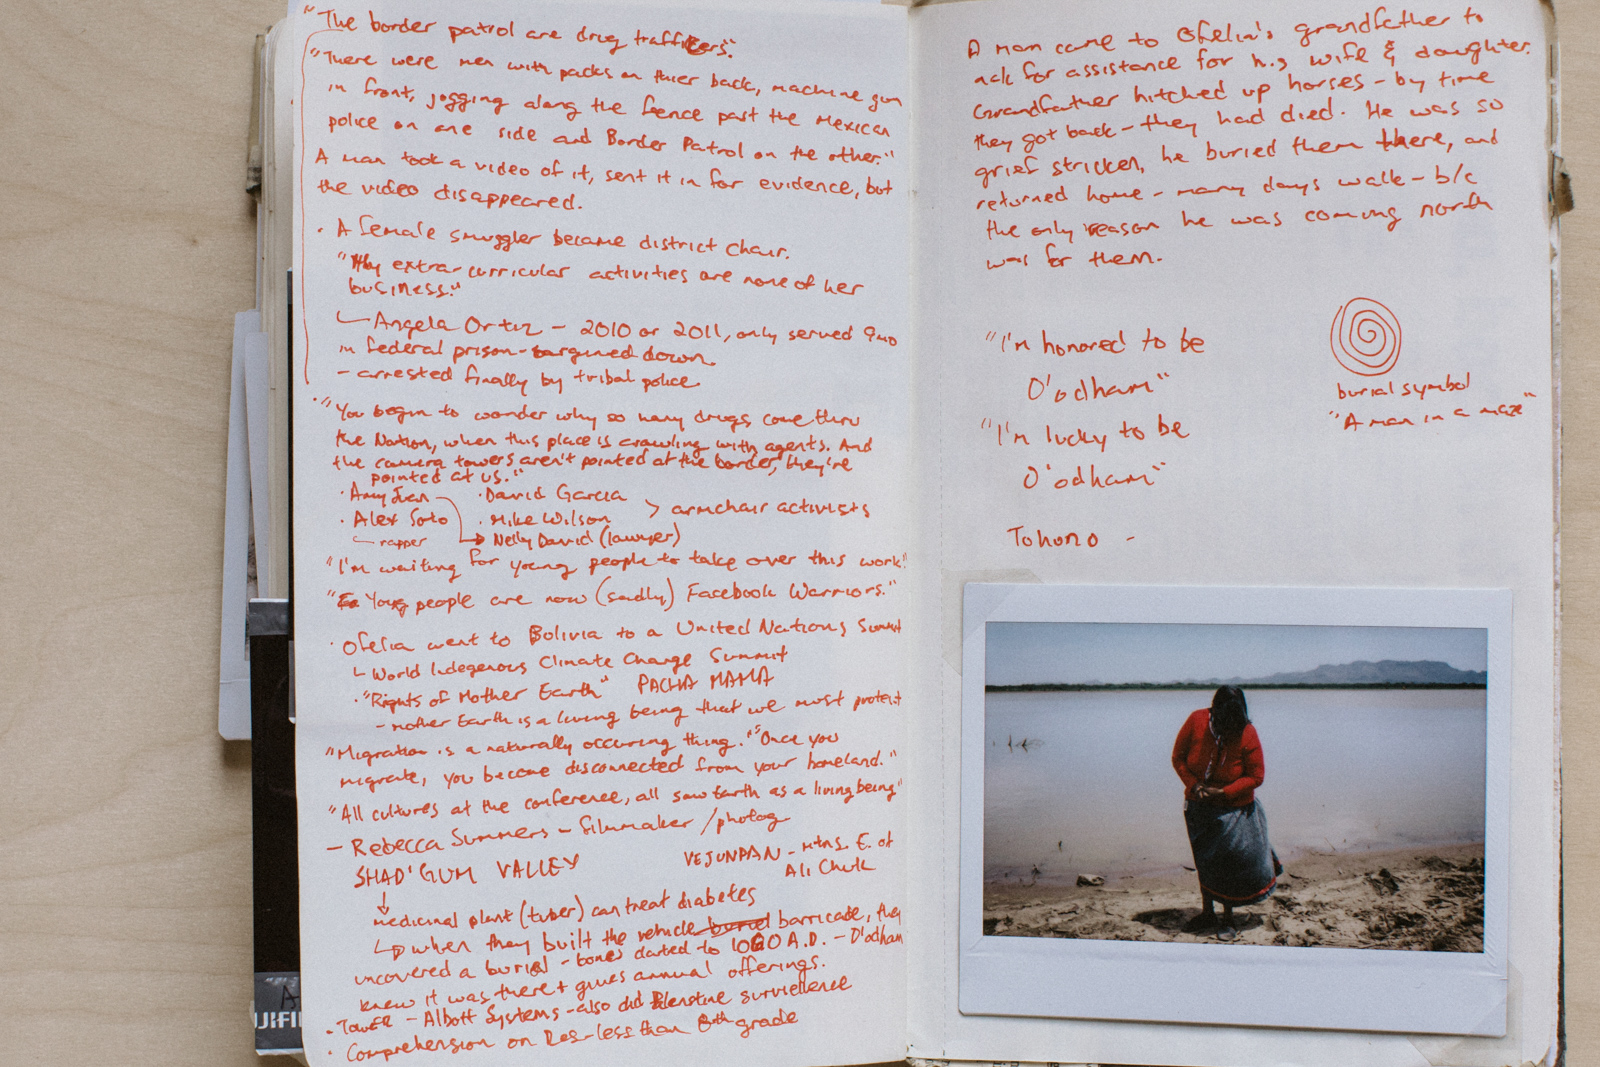 "The border patrol are drug traffickers."
"There were men with packs on thier back, machine gun
in front, jogging along the feence past the Mexican
police on one side and Border Patrol on the other."
A man took a video of it, sent it in for evidence, but
the video disappeared.
· A female smuggler became district chair.
"My extra-curricular activities are none of her
business."
Angela Ortiz - 2010 or 2011, only served 9mo
in federal prison - bargined down.
- arrested finally by tribal police
· "You begin to wonder why so many drugs come thru
the Nation, when this place is crawling with agents. And
the camera towers aren't pointed at the border, they're
pointed at us."
· Amy Juan · David Garcia
· Alex Soto · Mike Wilson > armchair activists
rapper Nelly David (lawyer)
"I'm waiting for young people to take over this work."
"Young people are now (sadly) Facebook Warriors."
· Ofelia went to Bolivia to a United Nations Summit
World Indegenous Climate Change Summit
· "Rights of Mother Earth" PACHA MAMA
- Mother Earth is a living being that we must protect
"Migration is a naturally occuring thing." "Once you
migrate, you become disconnected from your homeland."
"All cultures at the conference, all saw Earth as a living being"
- Rebecca Summers - filmmaker / photog
SHAD'GUM VALLEY VEJUNPAN - Mtns. E. of
Ali Chuk
medicinal plant (tuber) can treat diabetes
when they built the vehicle burial barricade, they
uncovered a burial - bones dated to A.D. - O'odham
knew it was there + gives annual offerings.
· Tower - Albott Systems - also did Palenstine survielence
· Comprehension on Res - less than 8th grade
A man came to Ofelia's grandfather to
ask for assistance for his wife & daughter.
Grandfather hitched up horses - by time
they got back - they had died. He was so
grief stricken, he buried them there, and
returned home - many days walk - b/c
the only reason he was coming north
was for them.
"I'm honored to be
O'odham"
"I'm lucky to be
O'odham"
burial symbol
"A man in a maze"
Tohono -